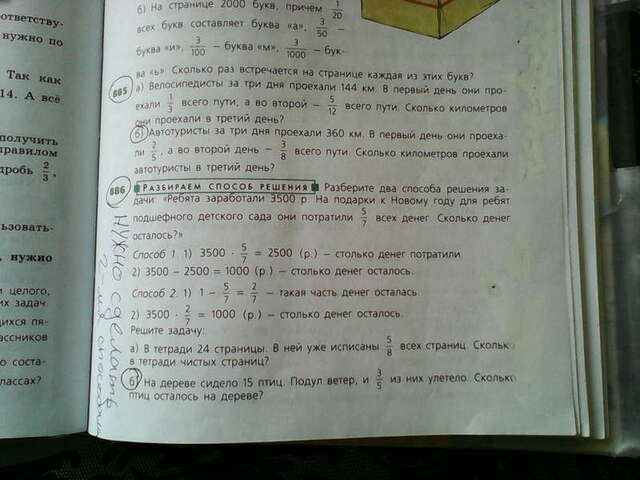 ответству-
нужно по
Так как
14. А всё
получить
правилом
дробь 2/3,
ьзовать-
, нужно
и целого,
их задач.
щихся пя-
лассников
о соста-
лассах?
б) На странице 2000 букв, причём 1/20
всех букв составляет буква «а», 3/50 –
буква «и», 3/100 – буква «м», 3/1000 – бук-
ва «ь». Сколько раз встречается на странице каждая из этих букв?
885 а) Велосипедисты за три дня проехали 144 км. В первый день они про-
ехали 1/3 всего пути, а во второй – 5/12 всего пути. Сколько километров
они проехали в третий день?
б) Автотуристы за три дня проехали 360 км. В первый день они проеха-
ли 2/5, а во второй день – 3/8 всего пути. Сколько километров проехали
автотуристы в третий день?
886 РАЗБИРАЕМ СПОСОБ РЕШЕНИЯ Разберите два способа решения за-
дачи: «Ребята заработали 3500 р. На подарки к Новому году для ребят
подшефного детского сада они потратили 5/7 всех денег. Сколько денег
осталось?»
Способ 1. 1) 3500 · 5/7 = 2500 (р.) – столько денег потратили.
2) 3500 – 2500 = 1000 (р.) – столько денег осталось.
Способ 2. 1) 1 – 5/7 = 2/7 – такая часть денег осталась.
2) 3500 · 2/7 = 1000 (р.) – столько денег осталось.
Решите задачу:
а) В тетради 24 страницы. В ней уже исписаны 5/8 всех страниц. Сколько
в тетради чистых страниц?
б) На дереве сидело 15 птиц. Подул ветер, и 3/5 из них улетело. Сколько
птиц осталось на дереве?
нужно сделать
2-мя способами